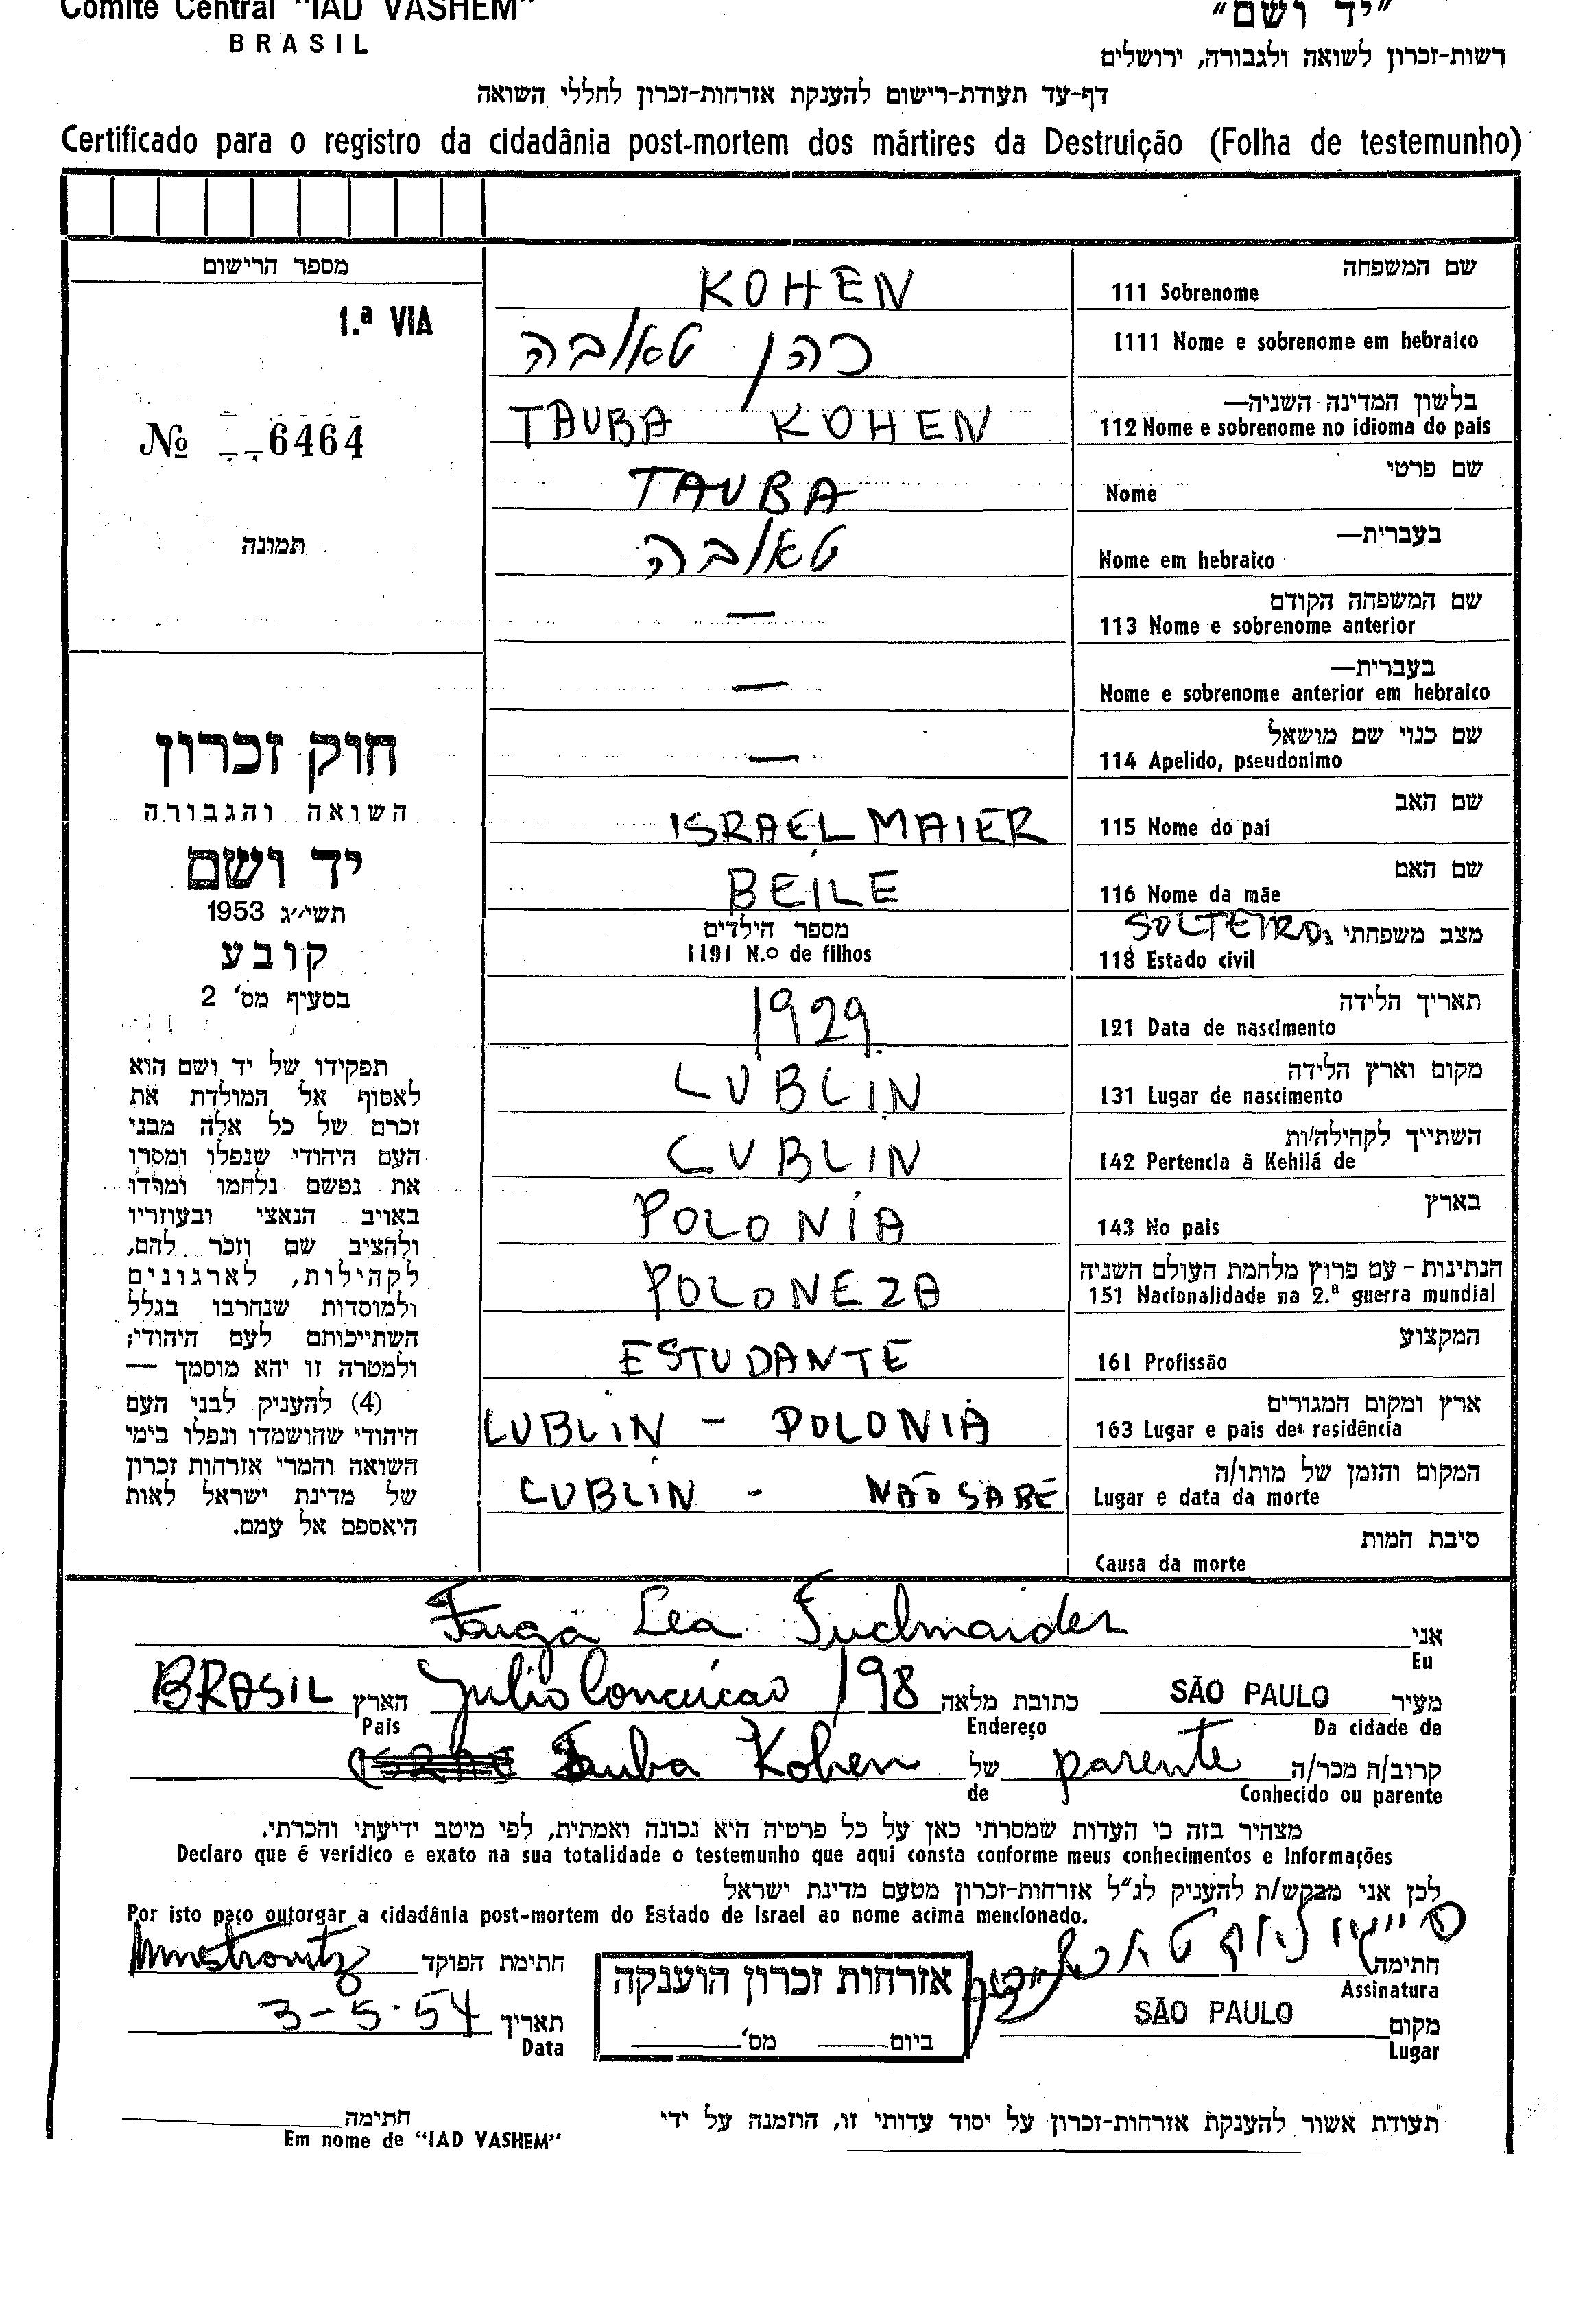 Comité Central "IAD VASHEM"
BRASIL
"יד ושם"
רשות-זכרון לשואה ולגבורה, ירושלים
דף-עד תעודת-רישום להענקת אזרחות-זכרון לחללי השואה
Certificado para o registro da cidadânia post-mortem dos mártires da Destruição (Folha de testemunho)
מספר הרישום
1.ª VIA
№ 6464
תמונה
שם המשפחה
111 Sobrenome
KOHEN
1111 Nome e sobrenome em hebraico
כהן טאובה
בלשון המדינה השניה—
112 Nome e sobrenome no idioma do pais
TAUBA KOHEN
שם פרטי
Nome
TAUBA
בעברית—
Nome em hebraico
טאובה
שם המשפחה הקודם
113 Nome e sobrenome anterior
—
בעברית—
Nome e sobrenome anterior em hebraico
—
שם כנוי שם מושאל
114 Apelido, pseudonimo
—
שם האב
115 Nome do pai
ISRAEL MAIER
שם האם
116 Nome da mãe
BEILE
מצב משפחתי SOLTEIRO
118 Estado civil
מספר הילדים
1191 N.º de filhos
תאריך הלידה
121 Data de nascimento
1929
מקום וארץ הלידה
131 Lugar de nascimento
LUBLIN
השתייך לקהילה/ות
142 Pertencia à Kehilá de
LUBLIN
בארץ
143 No pais
POLONIA
הנתינות - עם פרוץ מלחמת העולם השניה
151 Nacionalidade na 2.ª guerra mundial
POLONEZA
המקצוע
161 Profissão
ESTUDANTE
ארץ ומקום המגורים
163 Lugar e pais de residência
LUBLIN - POLONIA
המקום והזמן של מותו/ה
Lugar e data da morte
LUBLIN - NÃO SABE
סיבת המות
Causa da morte
חוק זכרון
השואה והגבורה
יד ושם
תשי״ג 1953
קובע
בסעיף מס' 2
תפקידו של יד ושם הוא
לאסוף אל המולדת את
זכרם של כל אלה מבני
העם היהודי שנפלו ומסרו
את נפשם נלחמו ומרדו
באויב הנאצי ובעוזריו
ולהציב שם וזכר להם,
לקהילות, לארגונים
ולמוסדות שנחרבו בגלל
השתייכותם לעם היהודי;
ולמטרה זו יהא מוסמך —
(4) להעניק לבני העם
היהודי שהושמדו ונפלו בימי
השואה והמרי אזרחות זכרון
של מדינת ישראל לאות
היאספם אל עמם.
אני Lea
Eu
מעיר SÃO PAULO כתובת מלאה Julio Conceicao 198 הארץ BRASIL
Da cidade de Endereço Pais
קרוב/ה מכר/ה parente של Tauba Kohen
Conhecido ou parente de
מצהיר בזה כי העדות שמסרתי כאן על כל פרטיה היא נכונה ואמתית, לפי מיטב ידיעתי והכרתי.
Declaro que é veridico e exato na sua totalidade o testemunho que aqui consta conforme meus conhecimentos e informações
לכן אני מבקש/ת להעניק לנ"ל אזרחות-זכרון מטעם מדינת ישראל
Por isto peço outorgar a cidadânia post-mortem do Estado de Israel ao nome acima mencionado.
חתימה
Assinatura
חתימת הפוקד
אזרחות זכרון הוענקה
ביום מס'
מקום SÃO PAULO
Lugar
תאריך 3-5-54
Data
תעודת אשור להענקת אזרחות-זכרון על יסוד עדותי זו, הוזמנה על ידי
חתימה
Em nome de "IAD VASHEM"